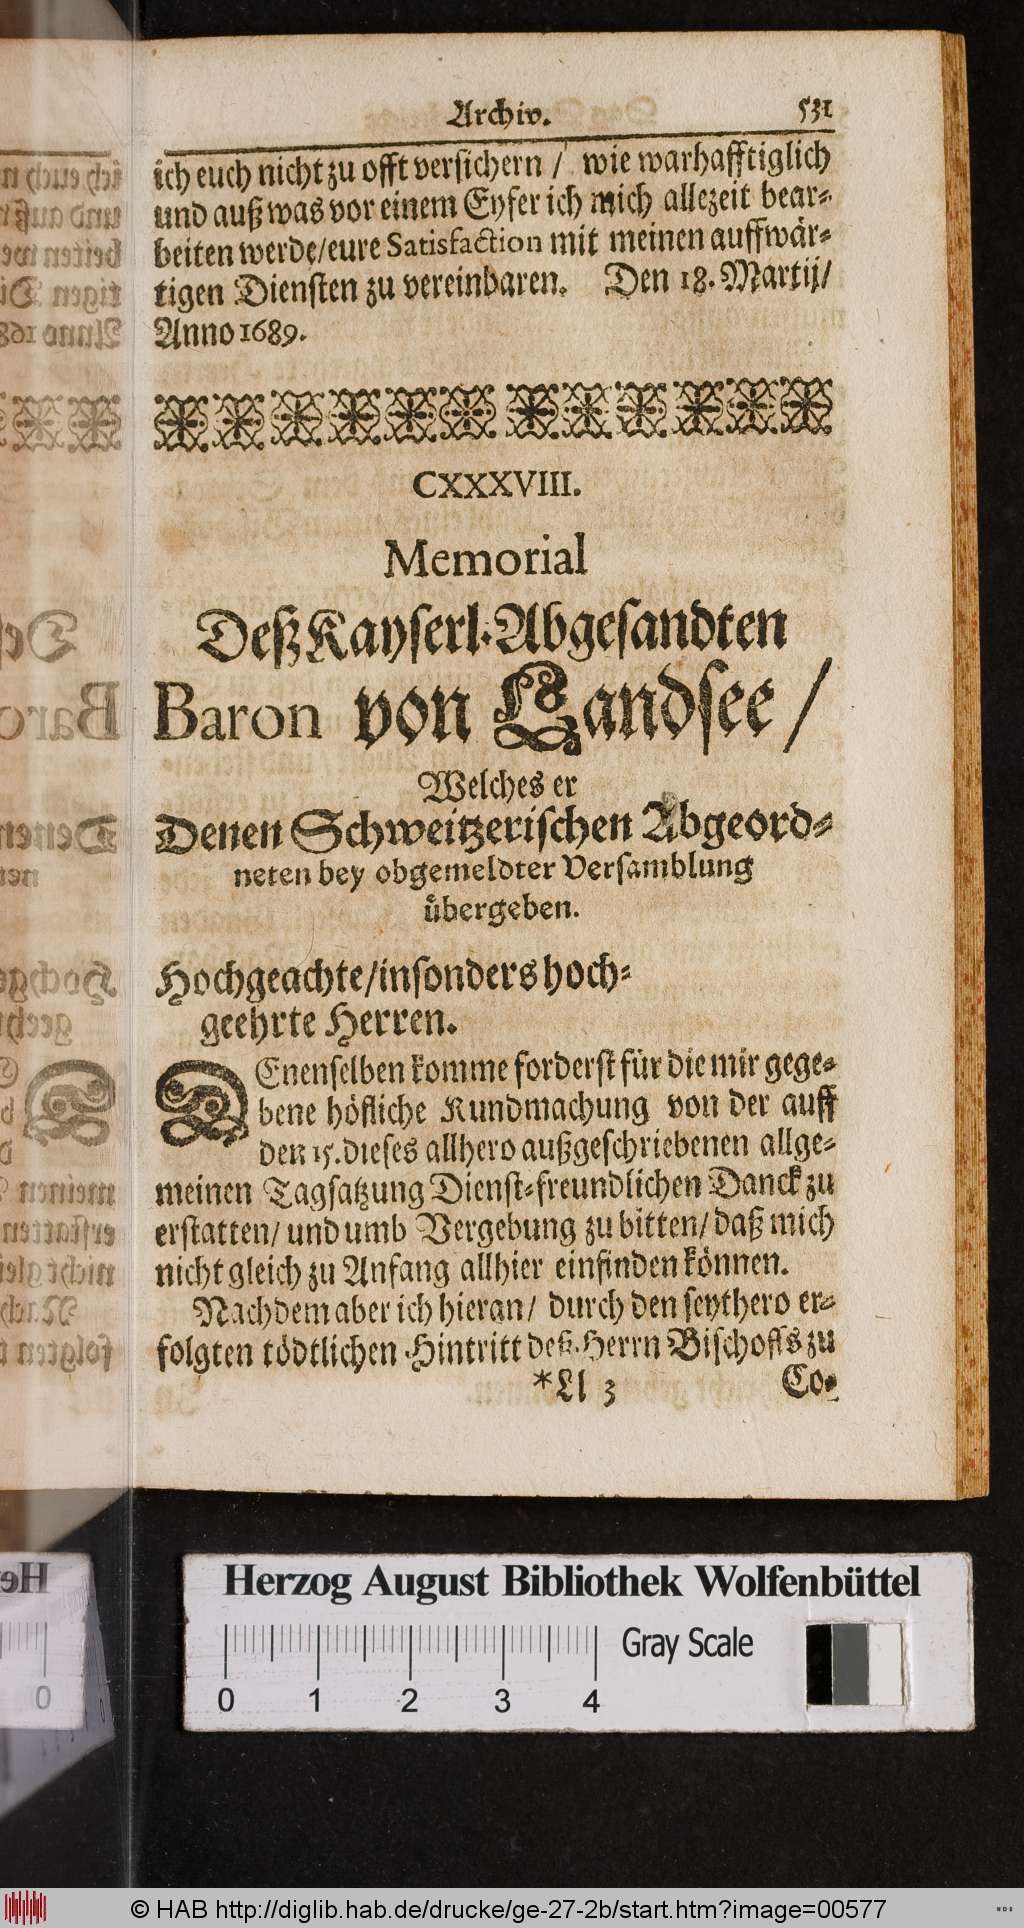 Archiv. 531
ich euch nicht zu offt versichern / wie warhafftiglich
und auß was vor einem Eyfer ich mich allezeit bear-
beiten werde/eure Satisfaction mit meinen auffwär-
tigen Diensten zu vereinbaren. Den 18. Martij/
Anno 1689.
CXXXVIII.
Memorial
Deß Kayserl. Abgesandten
Baron von Landsee /
Welches er
Denen Schweitzerischen Abgeord-
neten bey obgemeldter Versamblung
übergeben.
Hochgeachte/insonders hoch-
geehrte Herren.
DEnenselben komme forderst für die mir gege-
bene höfliche Kundmachung von der auff
den 15. dieses allhero außgeschriebenen allge-
meinen Tagsatzung Dienst-freundlichen Danck zu
erstatten/ und umb Vergebung zu bitten/ daß mich
nicht gleich zu Anfang allhier einfinden können.
Nachdem aber ich hieran/ durch den seythero er-
folgten tödtlichen Hintritt deß Herrn Bischoffs zu
*Ll 3 Co-
Herzog August Bibliothek Wolfenbüttel
Gray Scale
0 1 2 3 4
© HAB http://diglib.hab.de/drucke/ge-27-2b/start.htm?image=00577